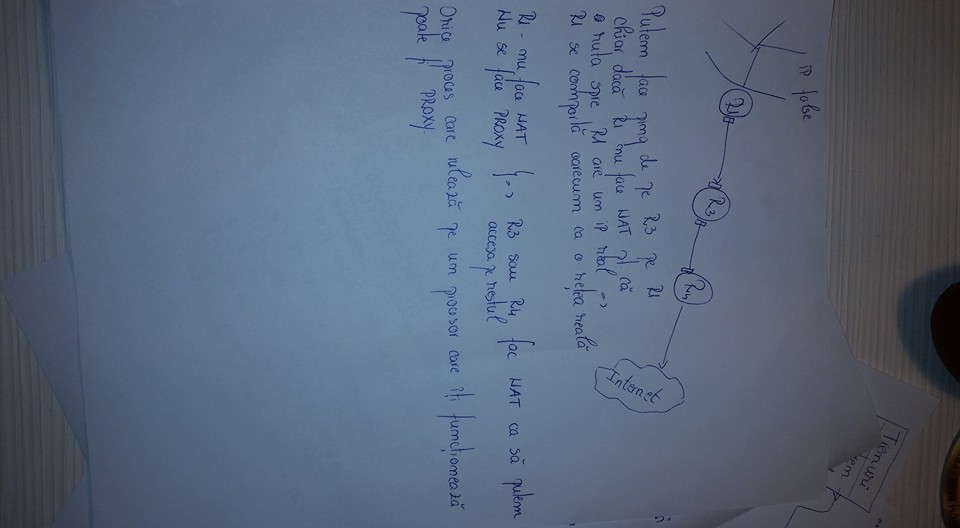 ip false
R1
R3
R4
Internet
Putem face ping de pe R3 pe R1
chiar dacă R1 nu face NAT pt că
o ruta spre R1 are un ip real =>
R1 se comportă oarecum ca o rețea reală
R1 - nu face NAT
Nu se face PROXY } => R3 sau R4 fac NAT ca să putem
accesa pe restul
Orice proces care rulează pe un procesor care îți funcționează
poate fi PROXY.
Tieruri